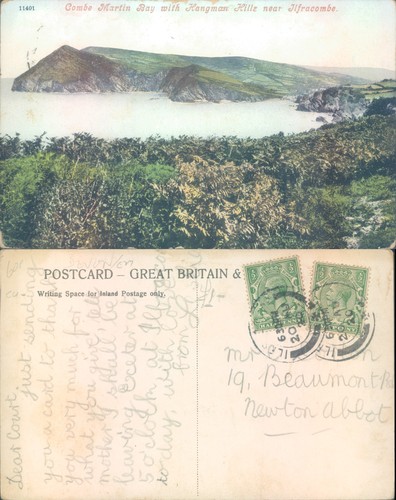 11401
Combe Martin Bay with Hangman Hills near Ilfracombe.
POSTCARD – GREAT BRITAIN &
Writing Space for Island Postage only.
Dear Court
Just sending
you a card to thank
you very much for
what you give
mother I shall be
leaving Exeter at
5 o'clock
today, with
from
mr
19, Beaumont Rd
Newton Abbot